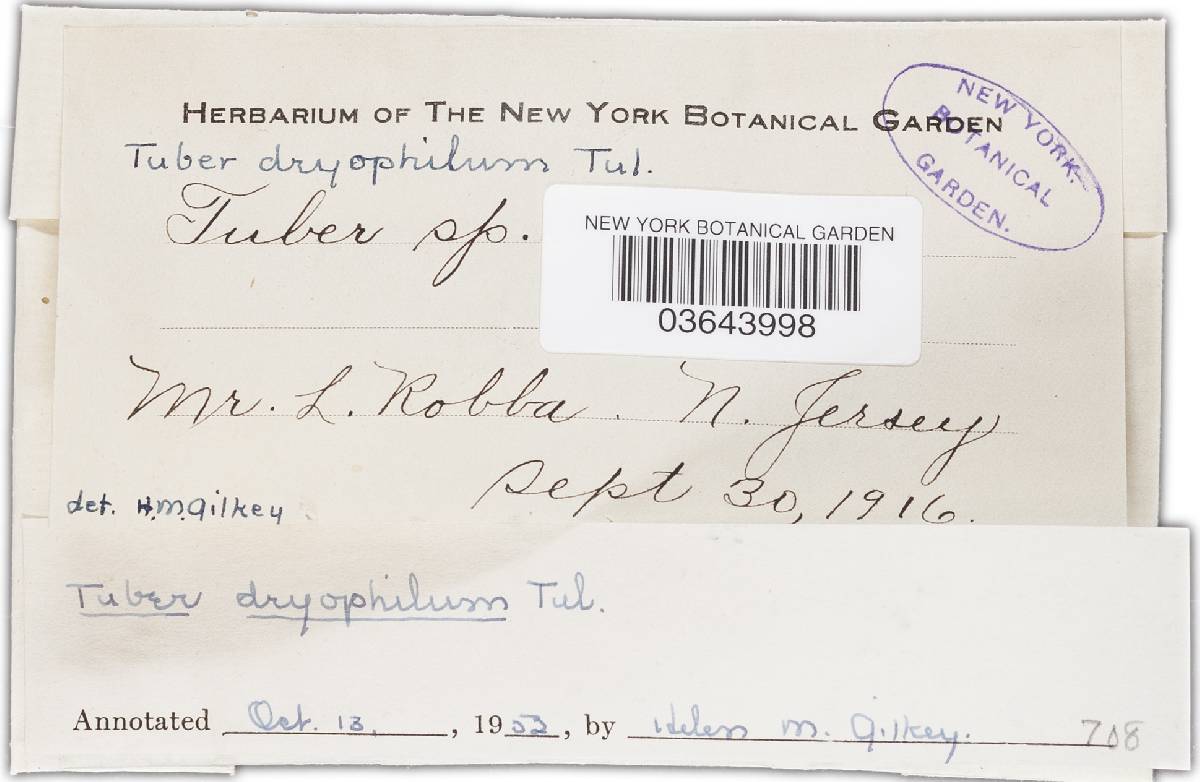 HERBARIUM OF THE NEW YORK BOTANICAL GARDEN
NEW YORK
BOTANICAL
GARDEN.
Tuber dryophilum Tul.
Tuber sp.
NEW YORK BOTANICAL GARDEN
03643998
Mr. L. Robba. N. Jersey
Sept 30, 1916.
det. H.M.Gilkey
Tuber dryophilum Tul.
Annotated Oct. 13, 1953, by Helen M. Gilkey. 708